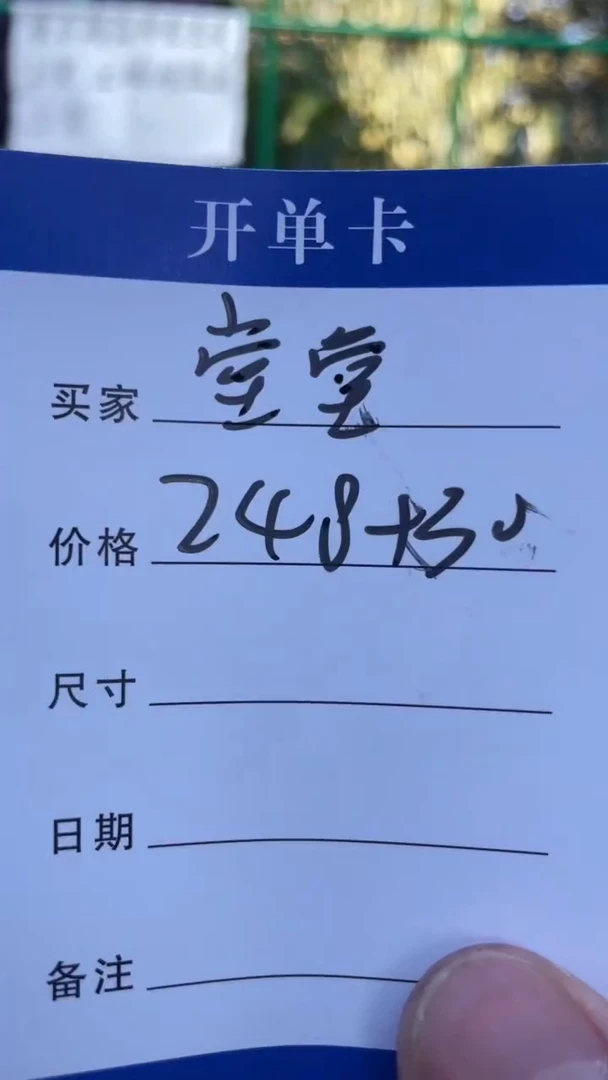 开单卡
买家 堂堂
价格 248+30
尺寸
日期
备注